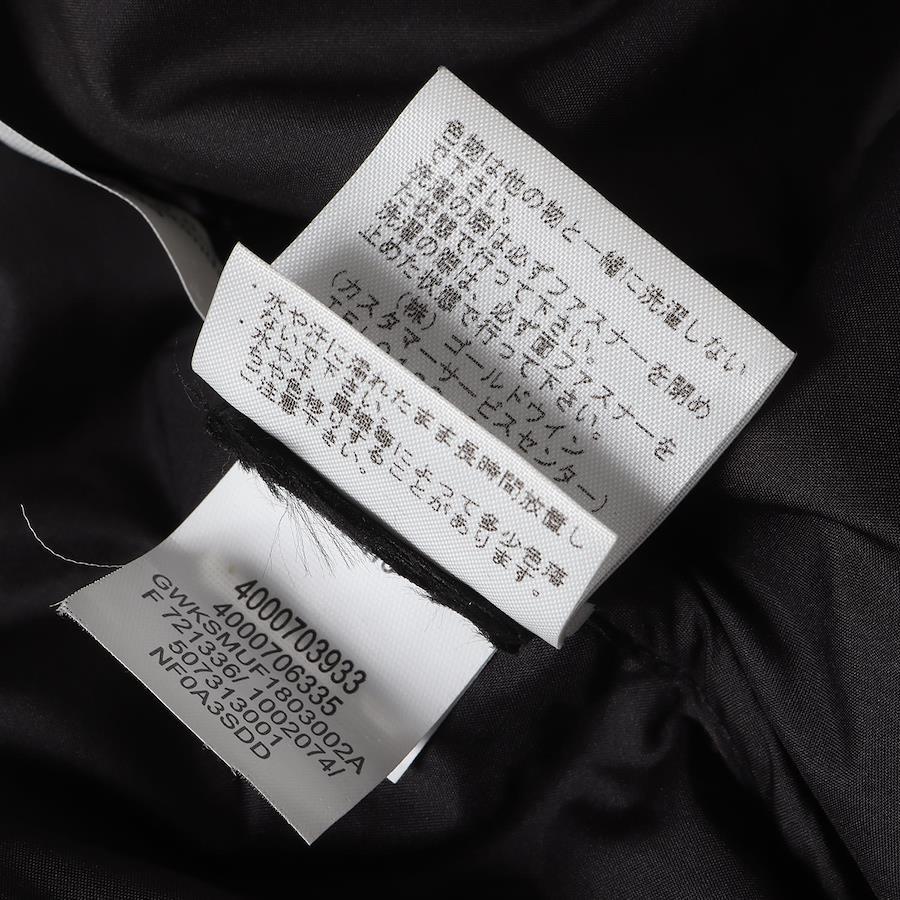 色物は他の物と一緒に洗濯しない
で下さい。
洗濯の際は必ずファスナーを閉め
た状態で行って下さい。
洗濯の際は、必ず面ファスナーを
止めた状態で行って下さい。
(株)ゴールドウイン
(カスタマーサービスセンター)
TEL
・水や汗に濡れたまま長時間放置し
ないで下さい。
・水や汗、摩擦等によって多少色落
ちや色移りすることがあります。
ご注意下さい。
4000703933
4000706335
GWKSMUF1803002A
F 721336/ 1002074/
507313001
NF0A3SDD